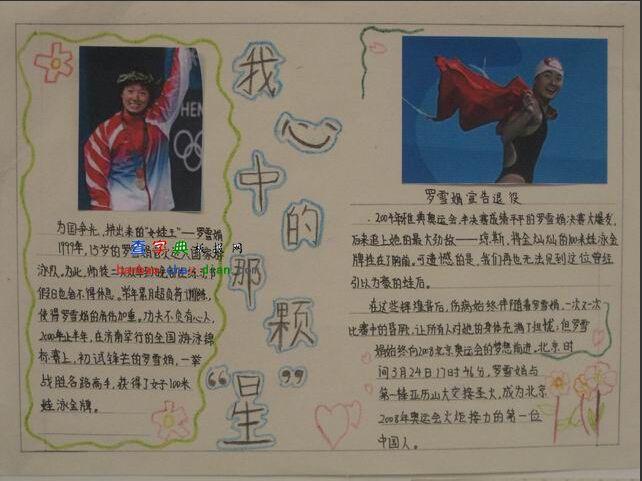 我心中的那颗“星”
为国争光，拼出来的“女蛙王”——罗雪娟
1997年，13岁的罗
家
泳队。为此，她
假日也会不得休息。常年累月超负荷训练，
使得罗雪娟的肩伤加重，功夫不负有心人，
2000年上半年，在济南举行的全国游泳锦
标赛上，初试锋芒的罗雪娟，一举
战胜各路高手，获得了女子100米
蛙泳金牌。
查字典手抄报网
HEN
罗雪娟宣告退役
2004年雅典奥运会，半决赛成绩平平的罗雪娟决赛大爆发，
后来追上她的最大劲敌——琼斯，将金灿灿的100米蛙泳金
牌挂在了胸前。可遗憾的是，我们再也无法见到这位曾经
引以为豪的蛙后。
在这些辉煌背后，伤病始终伴随着罗雪娟，一次又一次
比赛中的昏厥，让所有人对她的身体充满了担忧；但罗雪
娟始终向2008北京奥运会的梦想前进。北京时
间3月24日17时46分，罗雪娟与
第一棒亚历山大交接圣火，成为北京
2008年奥运会火炬接力的第一位
中国人。